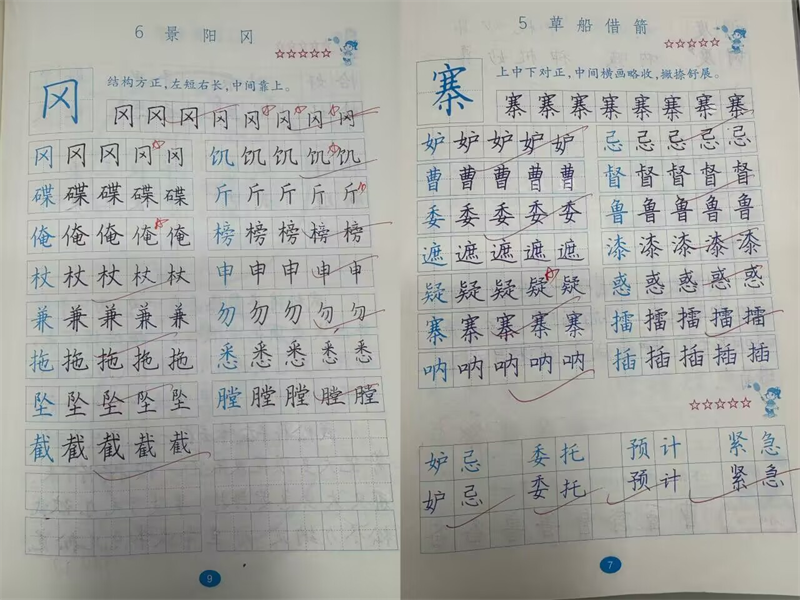 6 景 阳 冈
结构方正,左短右长,中间靠上。
冈 冈 冈 冈 冈 冈 冈 冈 冈
冈 冈 冈 冈 冈 饥 饥 饥 饥 饥
碟 碟 碟 碟 碟 斤 斤 斤 斤 斤
俺 俺 俺 俺 俺 榜 榜 榜 榜 榜
杖 杖 杖 杖 杖 申 申 申 申 申
兼 兼 兼 兼 兼 勿 勿 勿 勿 勿
拖 拖 拖 拖 拖 悉 悉 悉 悉 悉
坠 坠 坠 坠 坠 膛 膛 膛 膛 膛
截 截 截 截 截
9
5 草 船 借 箭
上中下对正,中间横画略收,撇捺舒展。
寨 寨 寨 寨 寨 寨 寨 寨 寨
妒 妒 妒 妒 妒 忌 忌 忌 忌 忌
曹 曹 曹 曹 曹 督 督 督 督 督
委 委 委 委 委 鲁 鲁 鲁 鲁 鲁
遮 遮 遮 遮 遮 漆 漆 漆 漆 漆
疑 疑 疑 疑 疑 惑 惑 惑 惑 惑
寨 寨 寨 寨 寨 擂 擂 擂 擂 擂
呐 呐 呐 呐 呐 插 插 插 插 插
妒 忌 委 托 预 计 紧 急
妒 忌 委 托 预 计 紧 急
7